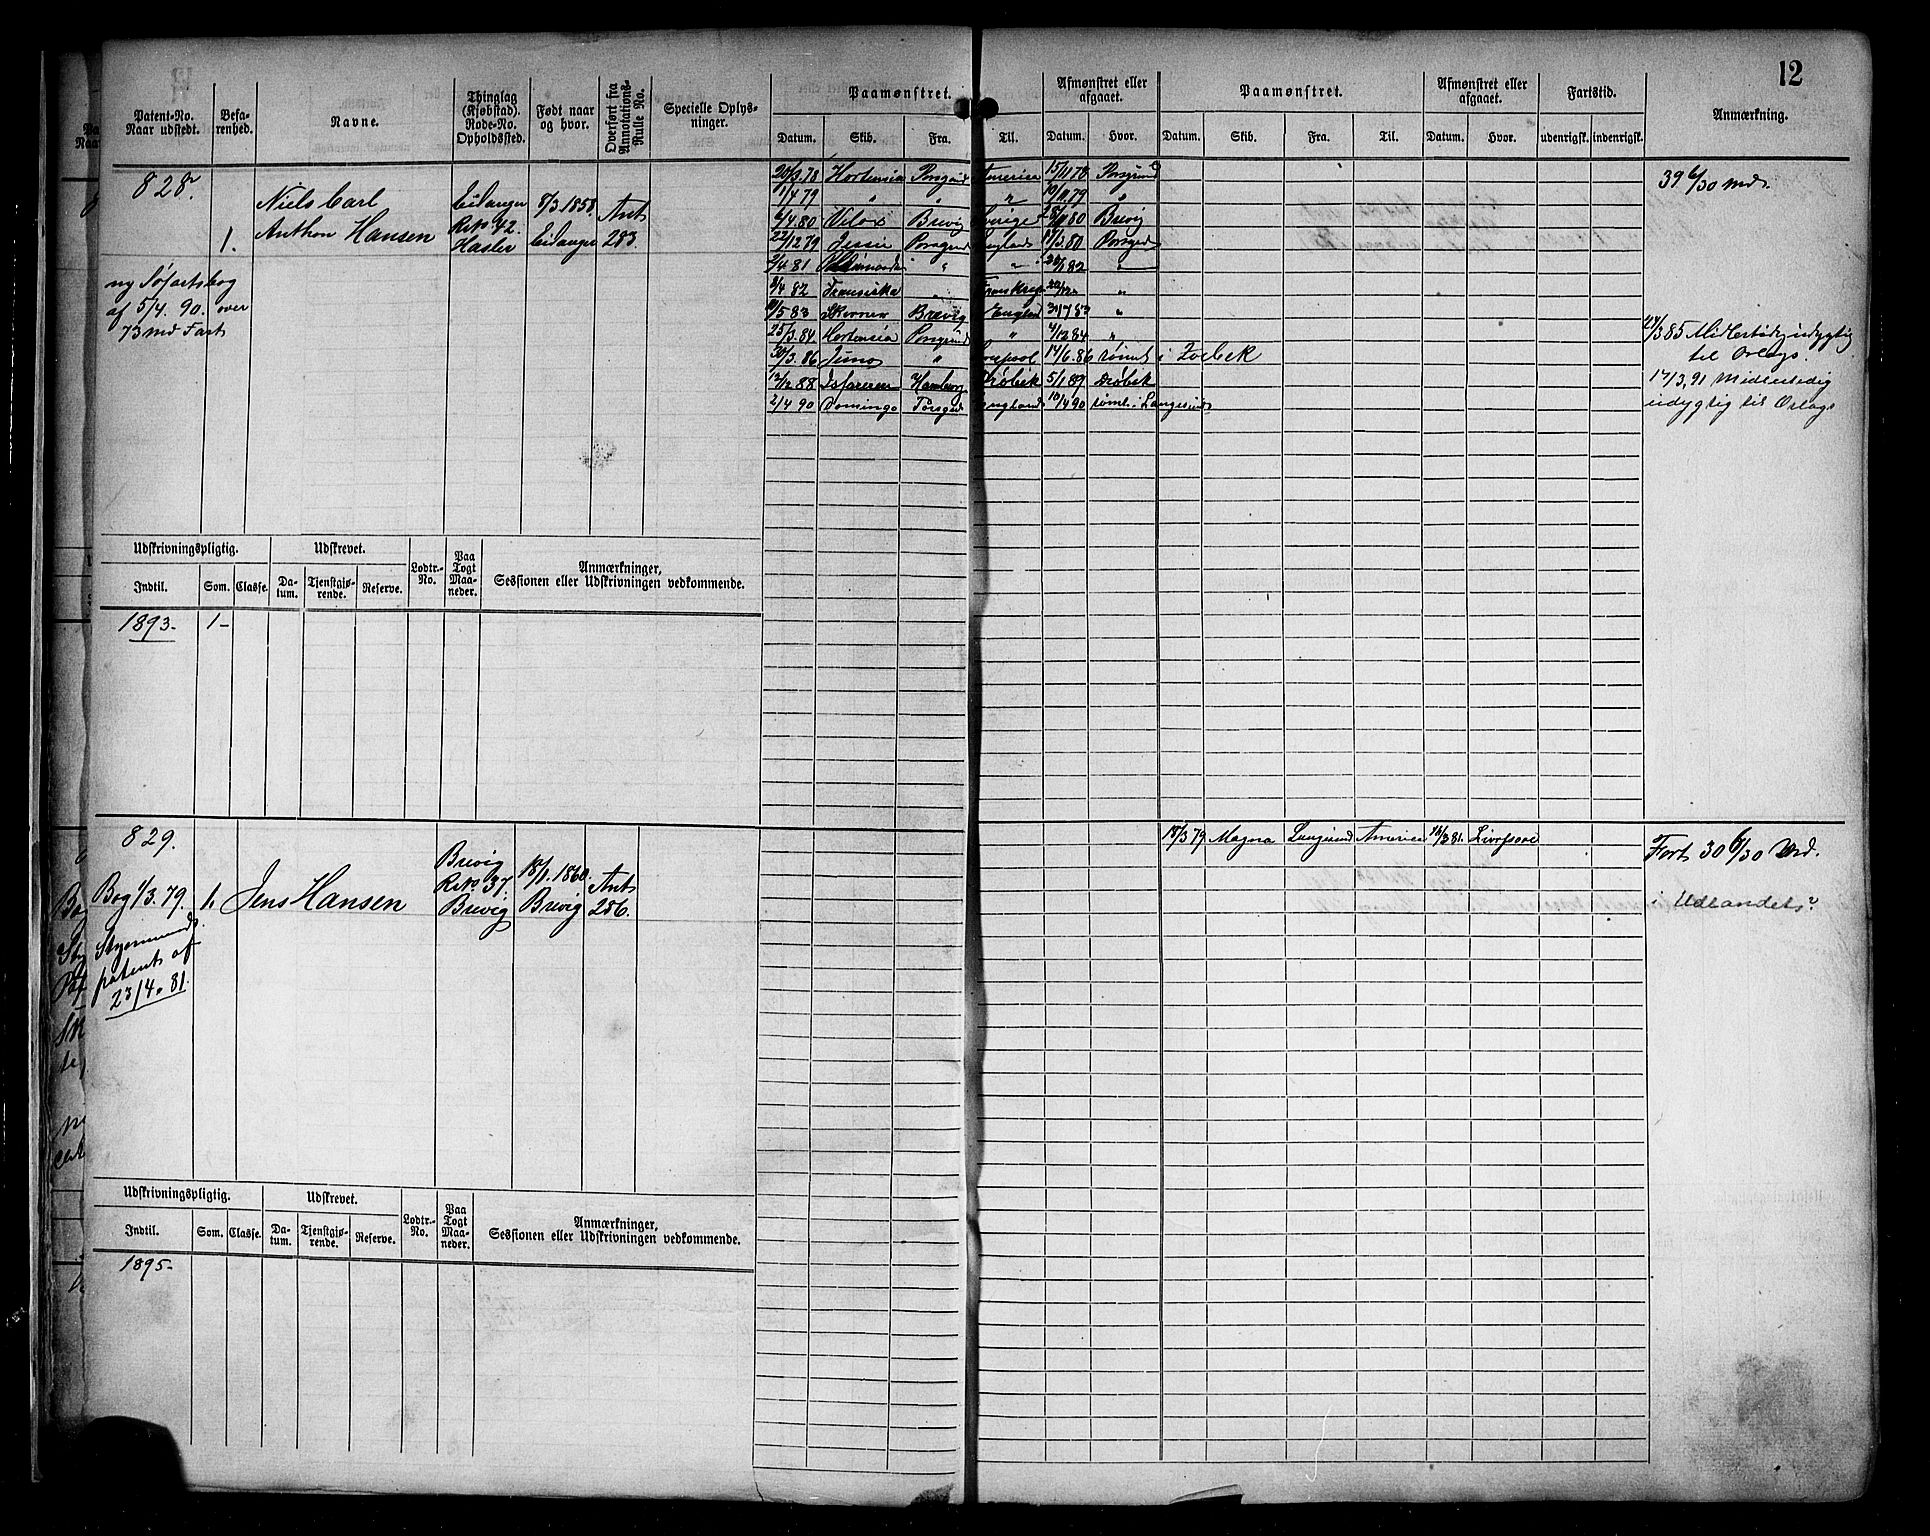 12
Patent-No. Naar udstedt.
Befarenhed.
Navne.
Thinglag (Kjøbstad). Rode-No. Opholdssted.
Født naar og hvor.
Overført fra Annotations-Rulle No.
Specielle Oplysninger.
Paamønstret.
Datum. Skib. Fra. Til.
Afmønstret eller afgaaet.
Datum. Hvor.
Paamønstret.
Datum. Skib. Fra. Til.
Afmønstret eller afgaaet.
Datum. Hvor.
Fartstid.
udenrigsk. indenrigsk.
Anmærkning.
828.
1.
Niels Carl
Anthon Hansen
Eidanger
Rtn 42.
Hasler
8/3 1858
Eidanger
Ant
283.
ny Søfartsbog
af 5/4. 90. over
73 md Fart
20/3 78 Hortensia Porsgrund America 15/11 78 Porsgrund
1/4 79 " " " 10/11 79 "
6/4 80 Brevig Sverige 80 Brevig
22/12 79 Jessie Porsgrund England 11/3 80 Porsgrd
2/4 81 " " 82 "
8/4 82 Fransiska " "
5 83 Brevig England 83 "
25/3 84 Hortensia Porsgrund " 4/12 84 "
3. 86 Juno " 14/6. 86 rømt i
12/12 88 Hamburg Drøbak 5/1 89 Drøbak
2/4 90 Domingo Porsgrd England 10/4 90 rømt i Langesund
39 6/30 Md.
24/3 85 Midlertidig udygtig
til Orlogs.
17/3, 91 Midlertidig
udygtig til Orlogs
Udskrivningspligtig.
Indtil. Som. Classe.
Udskrevet.
Datum. Tjenstgjørende. Reserve.
Lodtr.-No.
Paa Togt Maaneder.
Anmærkninger,
Sessionen eller Udskrivningen vedkommende.
1893. 1-
829.
Bog 1/3. 79.
Styrmands
patent af
23/4. 81.
1.
Jens Hansen
Brevig
Rtn 37.
Brevig
18/1. 1860
Brevig
Ant
286.
18/3 79 Magna Langesund America 16/3 81. Liverpool
Fart 30 6/30 Md.
i Udlandet?
Udskrivningspligtig.
Indtil. Som. Classe.
Udskrevet.
Datum. Tjenstgjørende. Reserve.
Lodtr.-No.
Paa Togt Maaneder.
Anmærkninger,
Sessionen eller Udskrivningen vedkommende.
1895-